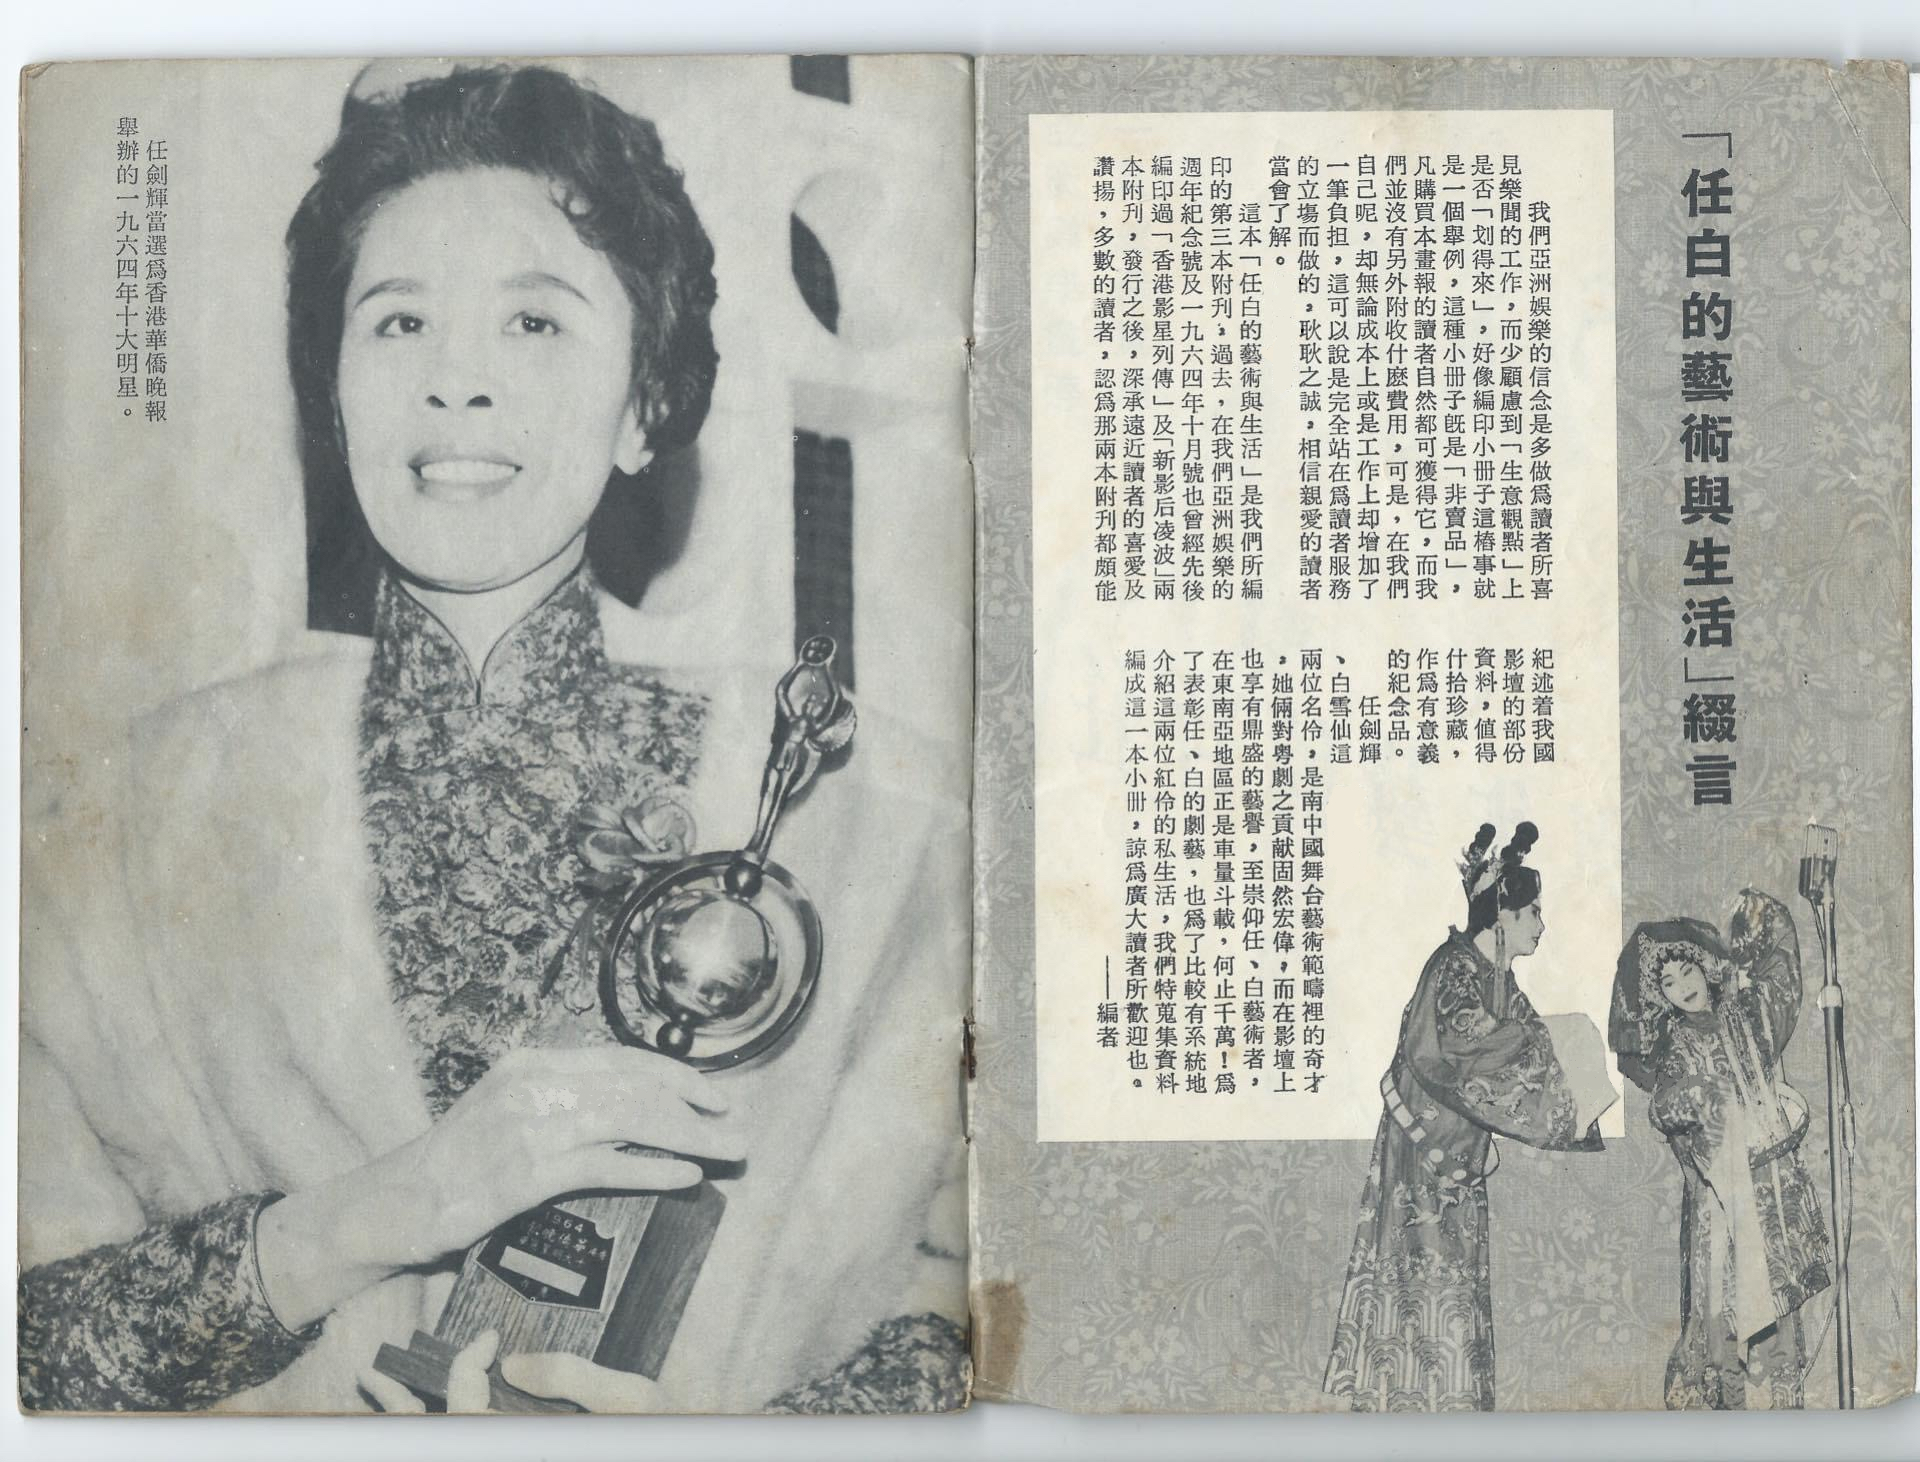 「任白的藝術與生活」綴言
我們亞洲娛樂的信念是多做爲讀者所喜
見樂聞的工作，而少顧慮到「生意觀點」上
是否「划得來」，好像編印小册子這樁事就
是一個舉例，這種小册子旣是「非賣品」，
凡購買本畫報的讀者自然都可獲得它，而我
們並沒有另外附收什麽費用，可是，在我們
自己呢，却無論成本上或是工作上却增加了
一筆負担，這可以說是完全站在爲讀者服務
的立塲而做的，耿耿之誠，相信親愛的讀者
當會了解。
這本「任白的藝術與生活」是我們所編
印的第三本附刋，過去，在我們亞洲娛樂的
週年紀念號及一九六四年十月號也曾經先後
編印過「香港影星列傳」及「新影后凌波」兩
本附刋，發行之後，深承遠近讀者的喜愛及
讚揚，多數的讀者，認爲那兩本附刋都頗能
紀述着我國
影壇的部份
資料，値得
什拾珍藏，
作爲有意義
的紀念品。
任劍輝
、白雪仙這
兩位名伶，是南中國舞台藝術範疇裡的奇才
，她倆對粤劇之貢献固然宏偉，而在影壇上
也享有鼎盛的藝譽，至崇仰任、白藝術者，
在東南亞地區正是車量斗載，何止千萬！爲
了表彰任、白的劇藝，也爲了比較有系統地
介紹這兩位紅伶的私生活，我們特蒐集資料
編成這一本小册，諒爲廣大讀者所歡迎也。
——編者
任劍輝當選爲香港華僑晚報
舉辦的一九六四年十大明星。
1964